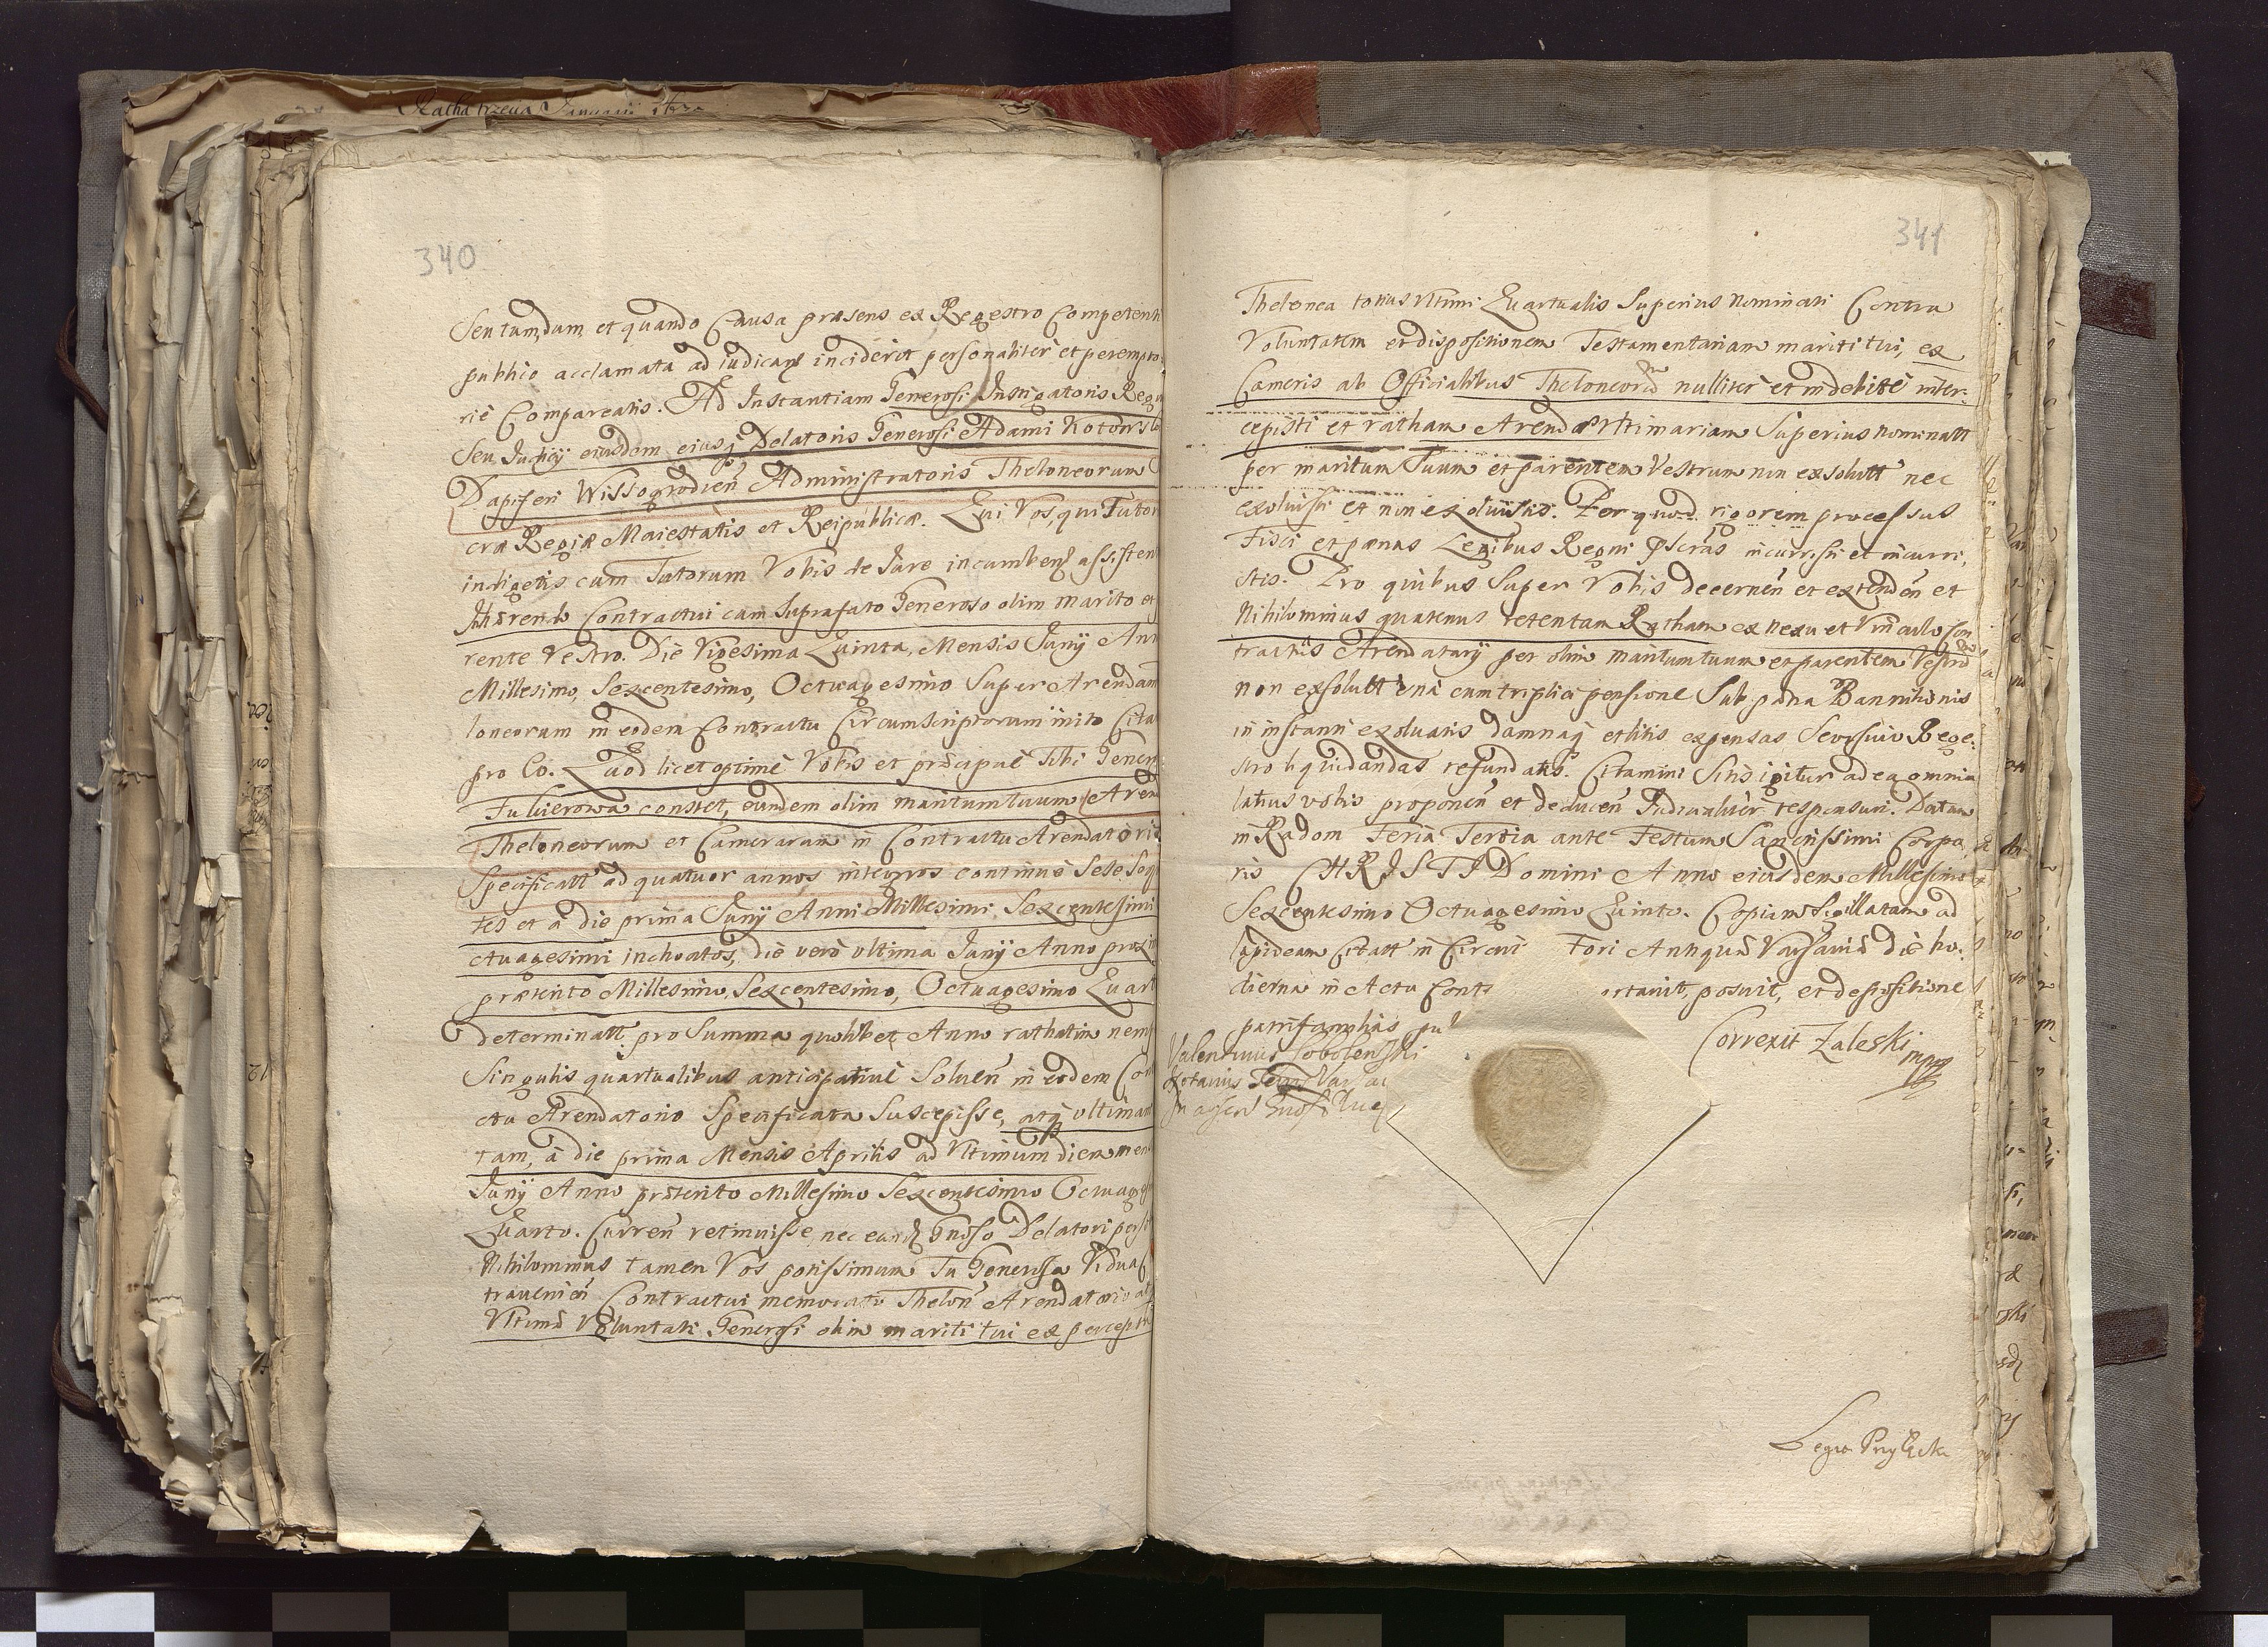 340
Seu tum, dum, et quando Causa præsens ex Regestro Competenti
publice acclamata ad iudicand inciderit personaliter et perempto
rie Compareatis. Ad Instantiam Generosi Instigatoris Regni
Seu Judicij eiusdem eiusq Delatoris Generosi Adami Kotowski
Dapiferi Wissogrodien Administratoris Theloneorum
cræ Regiæ Maiestatis et Reipublicæ. Qui Vos, qui Tutor
indigetis cum Tutorum Vobis de Jure incumbend assisten
Inhærendo Contractui cum Suprafato Generoso olim marito et
rente Vestro. Die Vigesima Quinta, Mensis Junij Ann
Millesimo, Sexcentesimo, Octuagesimo Super Arendam
loneorum in eodem Contractu Circumscriptorum inito Cita
pro Eo. Quod licet optime Vobis et præcipue Tibi Gener
constet, eundem olim maritum tuum Aren
Theloneorum et Camerarum in Contractu Arendatorio
Specificatt ad quatuor annos integros continue Sese Seq
tes et a die prima Junij Anni Millesimi Sexcentesimi
ctuagesimi inchoatos, die vero ultima Junij Anno proxi
præterito Millesimo, Sexcentesimo, Octuagesimo Quart
determinatt pro Summa quolibet Anno rathatim nem
Singulis quartualibus anticipative Soluen in eodem Con
ctu Arendatorio Specificata Suscepisse, atq ultimam
tam, a die prima Mensis Aprilis ad Vltimum diem men
Junij Anno præterito Millesimo Sexcentesimo Octuages
Quarto. Curren retinuisse, nec eand Gnoso Delatori pers
Nihilominus tamen Vos potissimum Tu Generosa Vidua
travenien Contractui memorato Thelon Arendatorio
Vltimæ Voluntati Generosi olim mariti tui ex percept
341
Thelonea totius Vltimi Quartualis Superius nominati Contra
Voluntatem et dispositionem Testamentariam mariti tui, ex
Cameris ab Officialibus Theloneorum nulliter et indebite inter-
cepisti et ratham Arendæ Vltimariam Superius nominatt
per maritum Tuum et parentem Vestrum non exsolutt nec
exoluisti et non exoluistis. Per quod rigorem processus
Fisci et pænas Legibus Regni descras incurristi et incurri,
stis. Pro quibus Super Vobis decernen et extenden et
Nihilominus quatenus retentam Ratham ex nexu et Vinculo Con
tractus Arendatarij per olim maritum tuum et parentem Vestrum
non exsolutt una cum triplici pensione Sub pæna Bannitionis
in instanti exoluatis damnaq et litis expensas Seorsivo Rege-
stro liquidandas refundatis. Citamini Sitis igitur ad ea omnia
latius vobis proponen et deducen Judicialiter responsuri. Datum
in Radom Feria Tertia ante Festum Sanctissimi Corpo
ris CHRISTI Domini Anno eiusdem Millesimo
Sexcentesimo Octuagesimo Quinto. Copiam Sigillatam ad
lapideam Citatt in Circui Fori Antiquæ Varsaviæ die ho-
dierna in Actu Cont ortavit, posuit, et depositione
patrifamilias pu
Valentinus Sobolewski
Notarius Terris Var
Correxit Zaleski
mpp